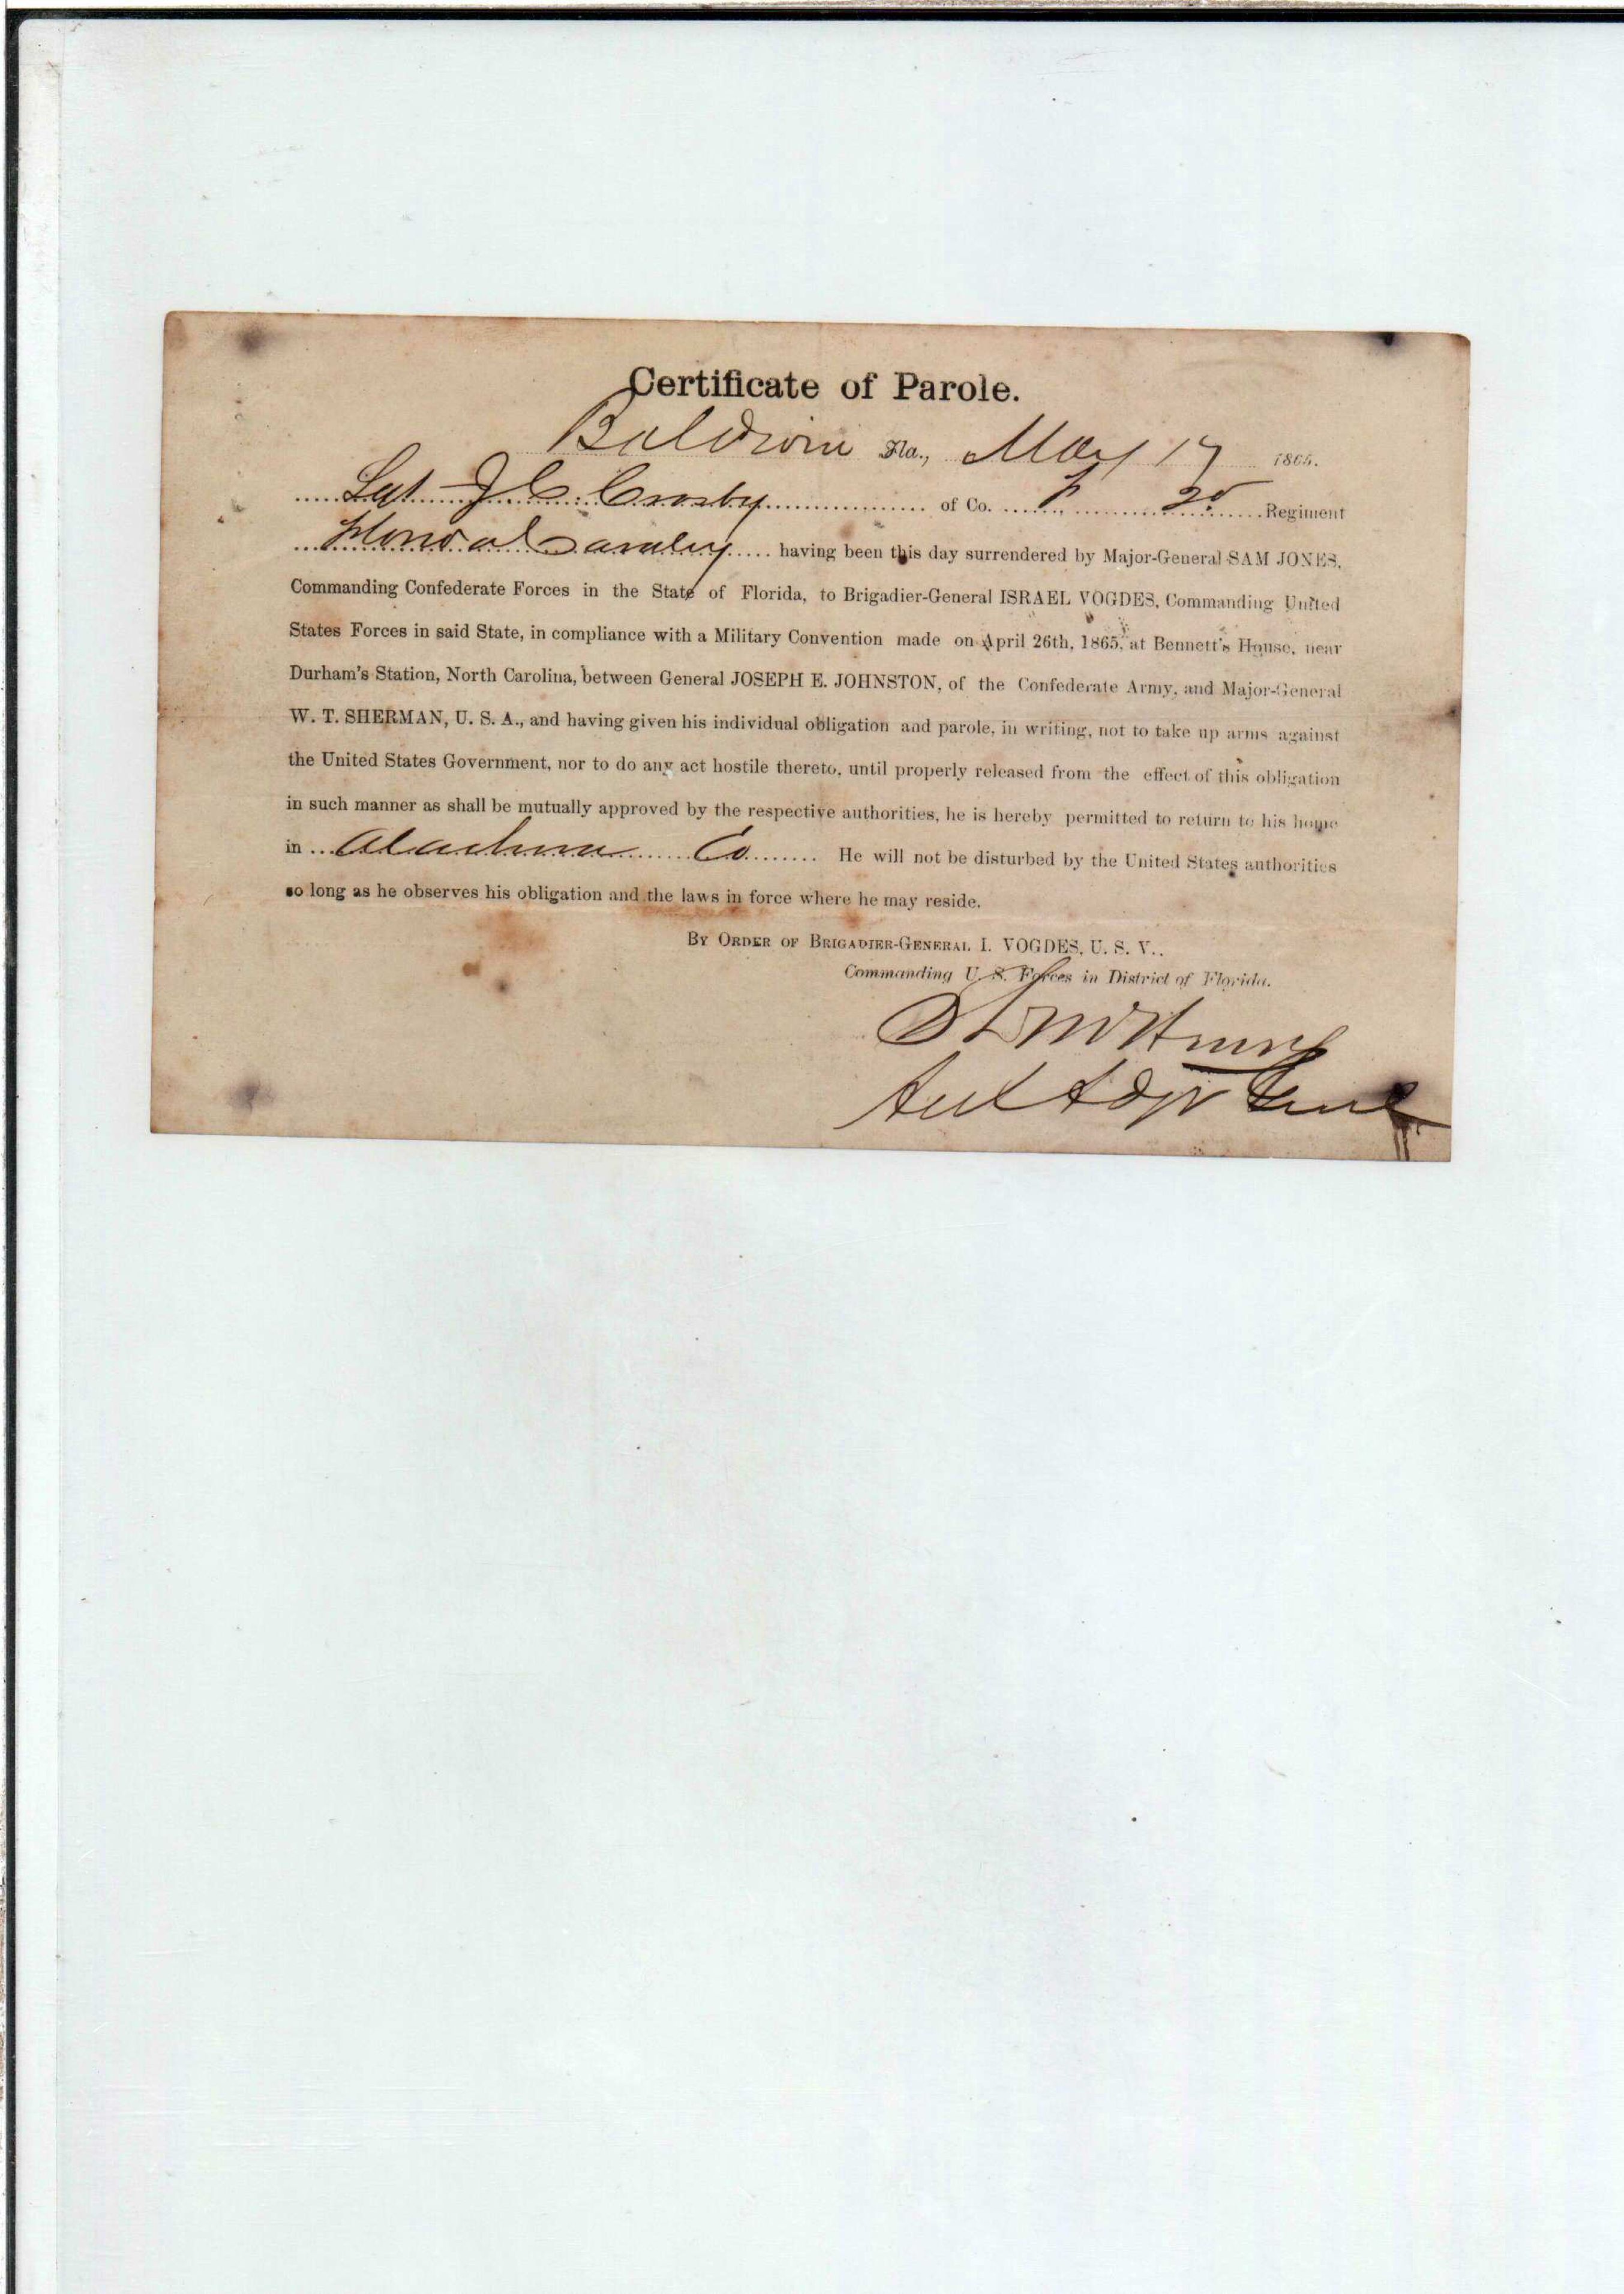 Certificate of Parole.
Baldwin Fla., May 17 1865.
Sgt J. C. Crosby of Co. F 2d Regiment
Florida Cavalry having been this day surrendered by Major-General SAM JONES,
Commanding Confederate Forces in the State of Florida, to Brigadier-General ISRAEL VOGDES, Commanding United
States Forces in said State, in compliance with a Military Convention made on April 26th, 1865, at Bennett's House, near
Durham's Station, North Carolina, between General JOSEPH E. JOHNSTON, of the Confederate Army, and Major-General
W. T. SHERMAN, U. S. A., and having given his individual obligation and parole, in writing, not to take up arms against
the United States Government, nor to do any act hostile thereto, until properly released from the effect of this obligation
in such manner as shall be mutually approved by the respective authorities, he is hereby permitted to return to his home
in Alachua Co He will not be disturbed by the United States authorities
so long as he observes his obligation and the laws in force where he may reside.
BY ORDER OF BRIGADIER-GENERAL I. VOGDES, U. S. V.,
Commanding U. S. Forces in District of Florida.
McHenry
Adjt Genl